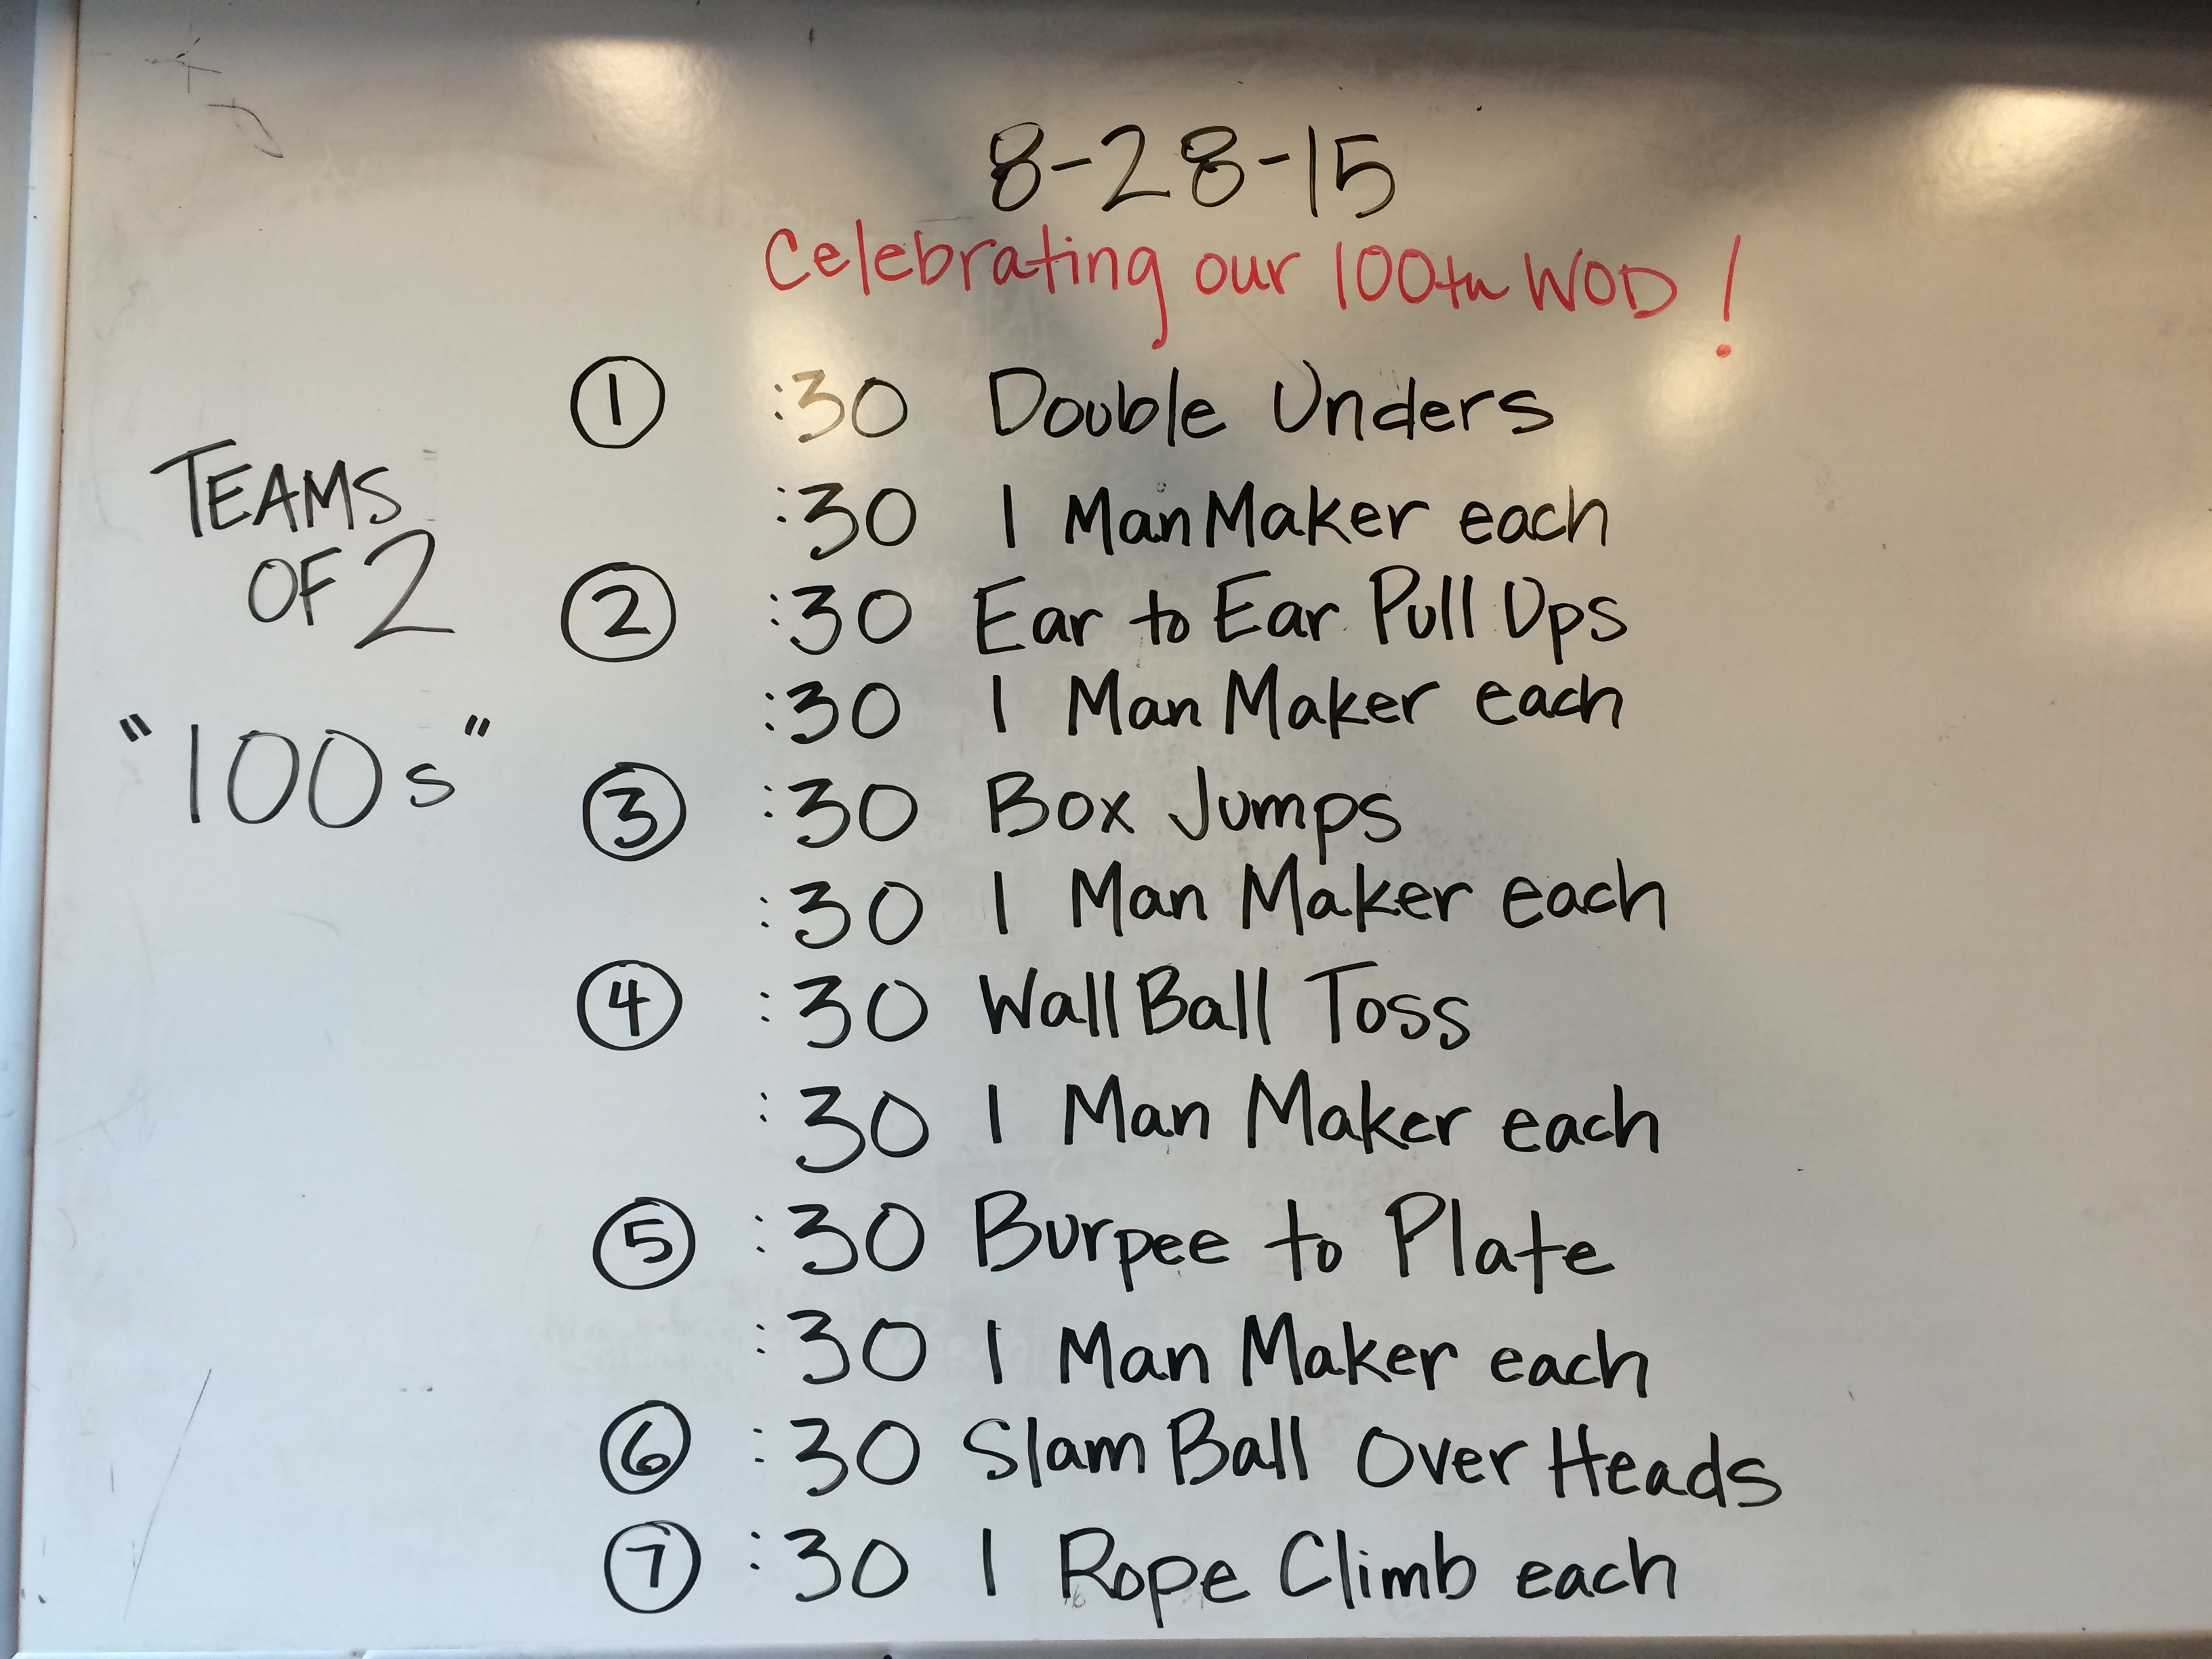 8-28-15
Celebrating our 100th WOD!
TEAMS
OF 2
"100s"
① :30 Double Unders
:30 1 Man Maker each
② :30 Ear to Ear Pull Ups
:30 1 Man Maker each
③ :30 Box Jumps
:30 1 Man Maker each
④ :30 Wall Ball Toss
:30 1 Man Maker each
⑤ :30 Burpee to Plate
:30 1 Man Maker each
⑥ :30 Slam Ball Over Heads
⑦ :30 1 Rope Climb each